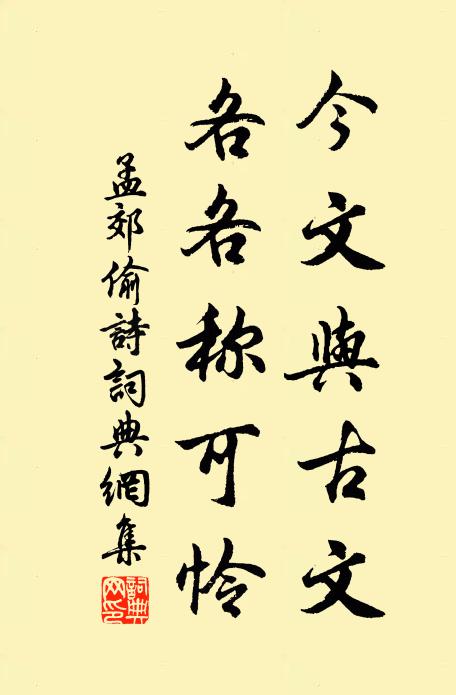 今文與古文
各各称可怜
孟郊偷詩詞典網集
詞典網印